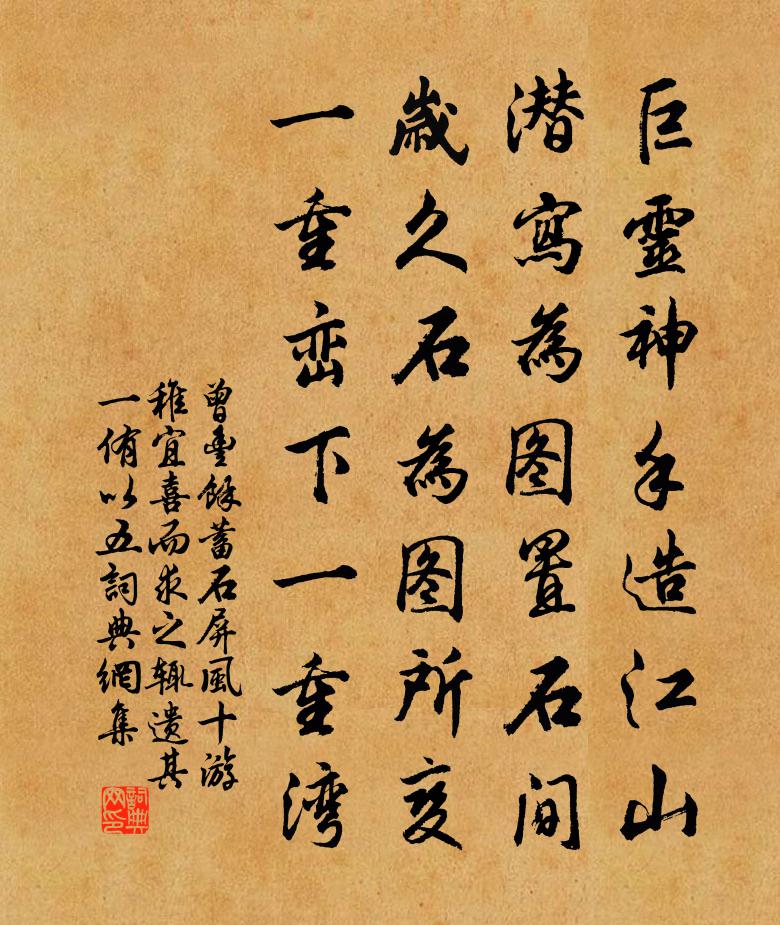 巨靈神手造江山
潜寫為图置石間
歲久石為图所变
一重峦下一重湾
曾豊餘蓄石屏風十游
稚宜喜而求之輒遺其
一侑以五詞典網集
詞典网印